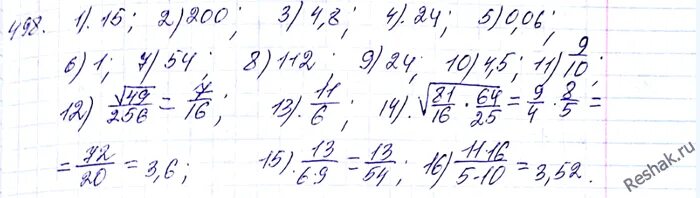 498. 1). 15; 2) 200; 3) 4,8; 4). 24; 5) 0,06;
6) 1; 7) 54; 8) 112; 9) 24; 10) 4,5; 11) 9/10;
12) √49/256 = 7/16; 13). 11/6; 14). √(81/16 · 64/25) = 9/4 · 8/5 =
= 72/20 = 3,6; 15). 13/(6·9) = 13/54; 16) (11·16)/(5·10) = 3,52.
Reshak.ru